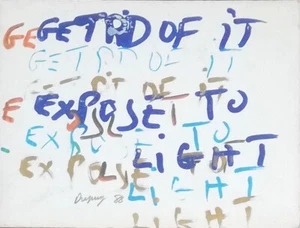 GE GET RID OF iT
GET RID OF IT
GET RID OF IT
E EXPOSE TO
EXPOSE TO
LIGHT
EXPOSE
LIGHT
88
LIGHT